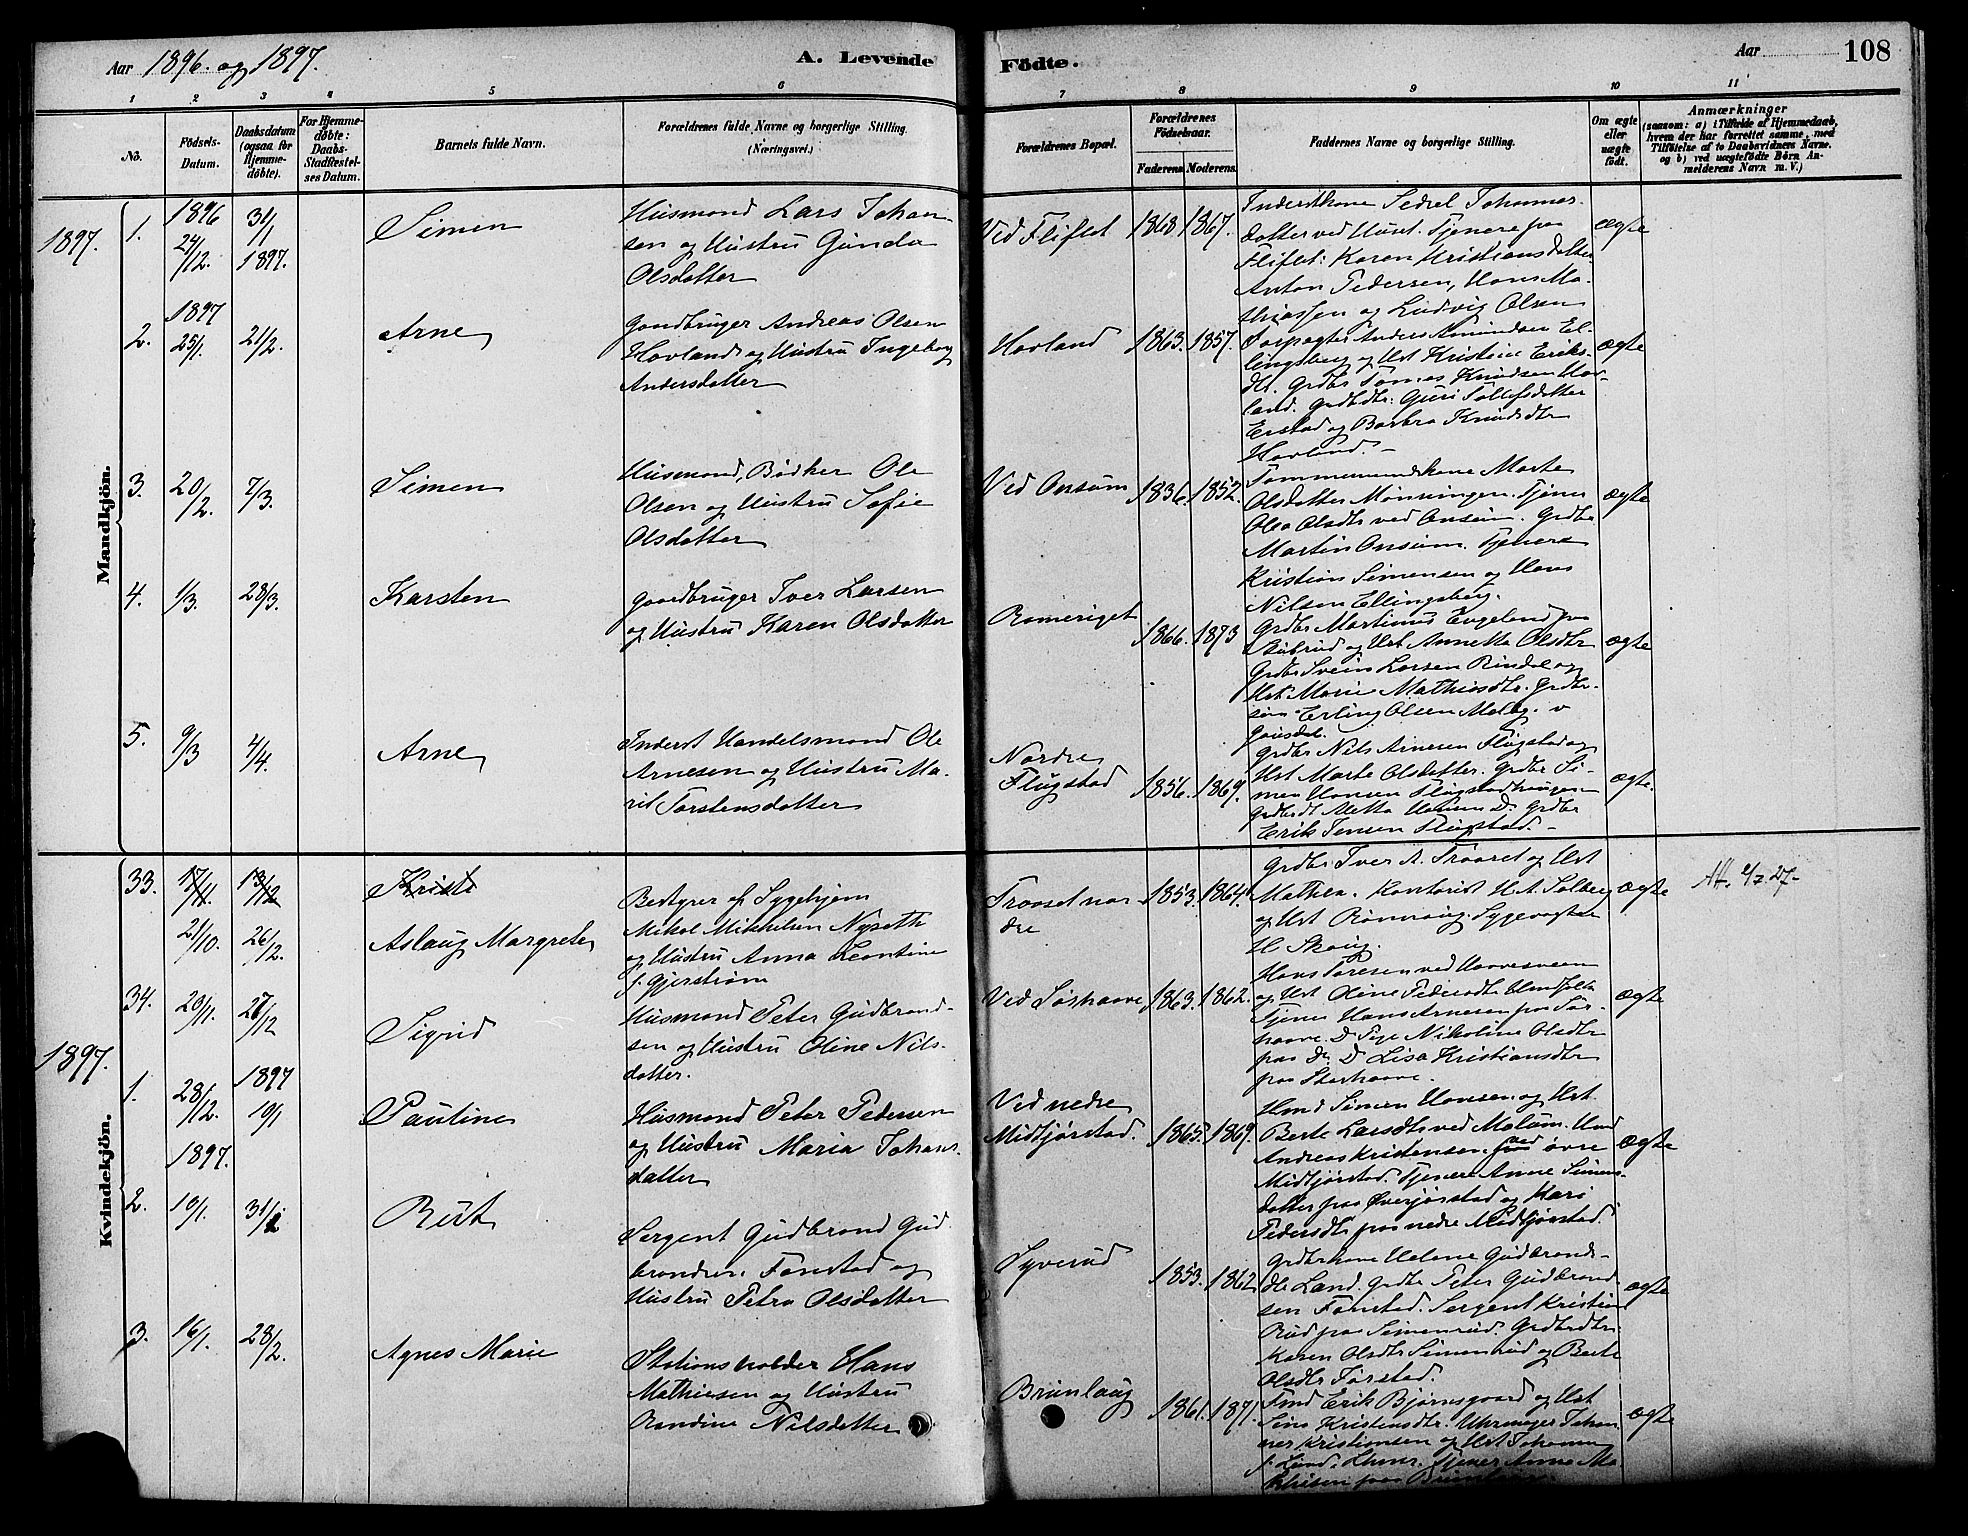 Aar 1896. og 1897.
A. Levende Födte.
Aar
108
1 2 3 4 5 6 7 8 9 10 11
No.
Födsels-
Datum.
Daabsdatum
(ogsaa for
Hjemme-
döbte).
For Hjemme-
döbte:
Daabs-
Stadfestel-
ses Datum.
Barnets fulde Navn.
Forældrenes fulde Navne og borgerlige Stilling.
(Næringsvei.)
Forældrenes Bopæl.
Forældrenes
Födselsaar.
Faderens. Moderens.
Faddernes Navne og borgerlige Stilling.
Om ægte
eller
uægte
födt.
Anmærkninger
(saasom: a) i Tilfælde af Hjemmedaab,
hvem der har forrettet samme, med
Tilföielse af to Daabsvidners Navne.
og b) ved uægtefödte Börn An-
melderens Navn m. V.)
Mandkjön.
1897.
1.
1896
24/12.
31/1
1897.
Simen
Husmand Lars Johan-
sen og Hustru Gunda
Olsdatter
Ved Fliflet
1868 1867.
Inderstkone Sedsel Johannes-
datter ved Huset. Tjenere paa
Fliflet: Karen Kristiansdatter
Anton Pedersen, Hans Ma-
thiassen og Ludvig Olsen
ægte
2.
1897
25/1.
21/2.
Arne
Gaardbruger Andreas Olsen
Hovland og Hustru Ingeborg
Andersdatter
Hovland
1863. 1857.
Forpagter Anders Amundsen El-
lingsberg og Hst Kristine Eriks-
dtr. Grdbr Tomas Knudsen Hov-
land. Grdbdtr: Guri Tollefsdatter
Erstad og Barbra Knudsdtr
Hovland. –
ægte
3.
20/2.
7/3.
Simen
Husmand, Bødker Ole
Olsen og Hustru Sofie
Olsdatter
Ved Onsum
1836. 1852.
Tømmermandskone Marte
Olsdatter Mønningen. Tjener
Olea Olsdtr ved Onsum. Grdbr
Martin Onsum. Tjenere
Kristian Simensen og Hans
Nilsen Ellingsberg.
ægte
4.
1/3.
28/3.
Karsten
Gaardbruger Iver Larsen
og Hustru Karen Olsdatter
Romeriget
1866. 1873
Grdbr Martinus Engeland paa
og Hst Annetta Olsdtr
Grdbr Svein Larsen Rindal og
Hst. Marie Mathiasdtr. Grdbr-
søn Erling Olsen Melby. v
Gausdal.
ægte
5.
9/3
4/4.
Arne
Inderst Handelsmand Ole
Arnesen og Hustru Ma-
rit Torstensdatter
Nordre
Flugstad
1856. 1869.
Grdbr Nils Arnesen Flugstad og
Hst Marte Olsdatter. Grdbr Si-
men Hansen Flugstadhaugen
Grdbrdt Aletta Hansen D. Grdbr
Erik Jensen Flugstad. –
ægte.
33.
17/11.
13/12
Kristi
21/10.
26/12.
Aslaug Margrete
Bestyrer af Sygehjem
Mikal Mikkelsen Nyseth
og Hustru Anna Leontine
f. Gjerstrøm
Traaset nor
dre
1853. 1864.
Grdbr. Iver A. Traaset og Hst
Mathea. Kontorist H. A. Solberg
og Hst Rønnaug. Sygevogter
H. Skaug.
ægte
Att. 2/7.27-
34.
20/11.
27/12
Sigrid
Husmand Peter Gudbrand-
sen og Hustru Oline Nils-
datter.
Ved Sørhaave
1863. 1862.
Hans Toresen ved Haavesveen
og Hst Oline Pedersdtr
Tjener Hans Arnesen paa Sør-
haave. D. Pige Nikoline Olsdtr
paa do. D Lisa Kristiansdtr
paa Storhaave.
ægte
Kvindekjön.
1897.
1.
28/12.
1897
10/1
Pauline
Husmand Peter Pedersen
og Hustru Maria Johans-
datter
Ved nedre
Midtjørstad.
1865. 1869.
Hmd Simen Hansen og Hst.
Berte Larsdtr ved Molum. Hmd
Andreas Kristensen ved øvre
Midtjørstad. Tjenere Anne Simens-
datter paa Øverjørstad og Kari
Pedersdtr paa nedre Midtjørstad.
ægte
1897.
2.
10/1.
31/1
Rut
Sergent Gudbrand Gud
brandsen Fonstad og
Hustru Petra Olsdatter
Syverud
1853. 1862
Grdbrkone Helene Gudbrands-
dtr Land. Grdbr Peter Gudbrand
sen Fonstad. Sergent Kristian
Rud paa Simenrud. Grdbrdtr:
Karen Olsdtr Simenrud og Berte
Olsdtr Forstad.
ægte
3.
16/1.
28/2.
Agnes Marie
Stationsholder Hans
Mathiesen og Hustru
Randine Nilsdatter
Brunlaug
1861. 1871.
Fmd Erik Bjørnsgaard og Hst
Sina Kristensdtr. Uhrmager Johan
nes Kristiansen og Hst Johanne
f. Lund. Lhmr. Tjener Anne Ma
thisen paa Brunlaug
ægte